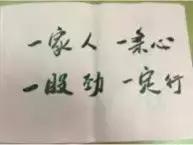 一家人 一条心
一股劲 一定行